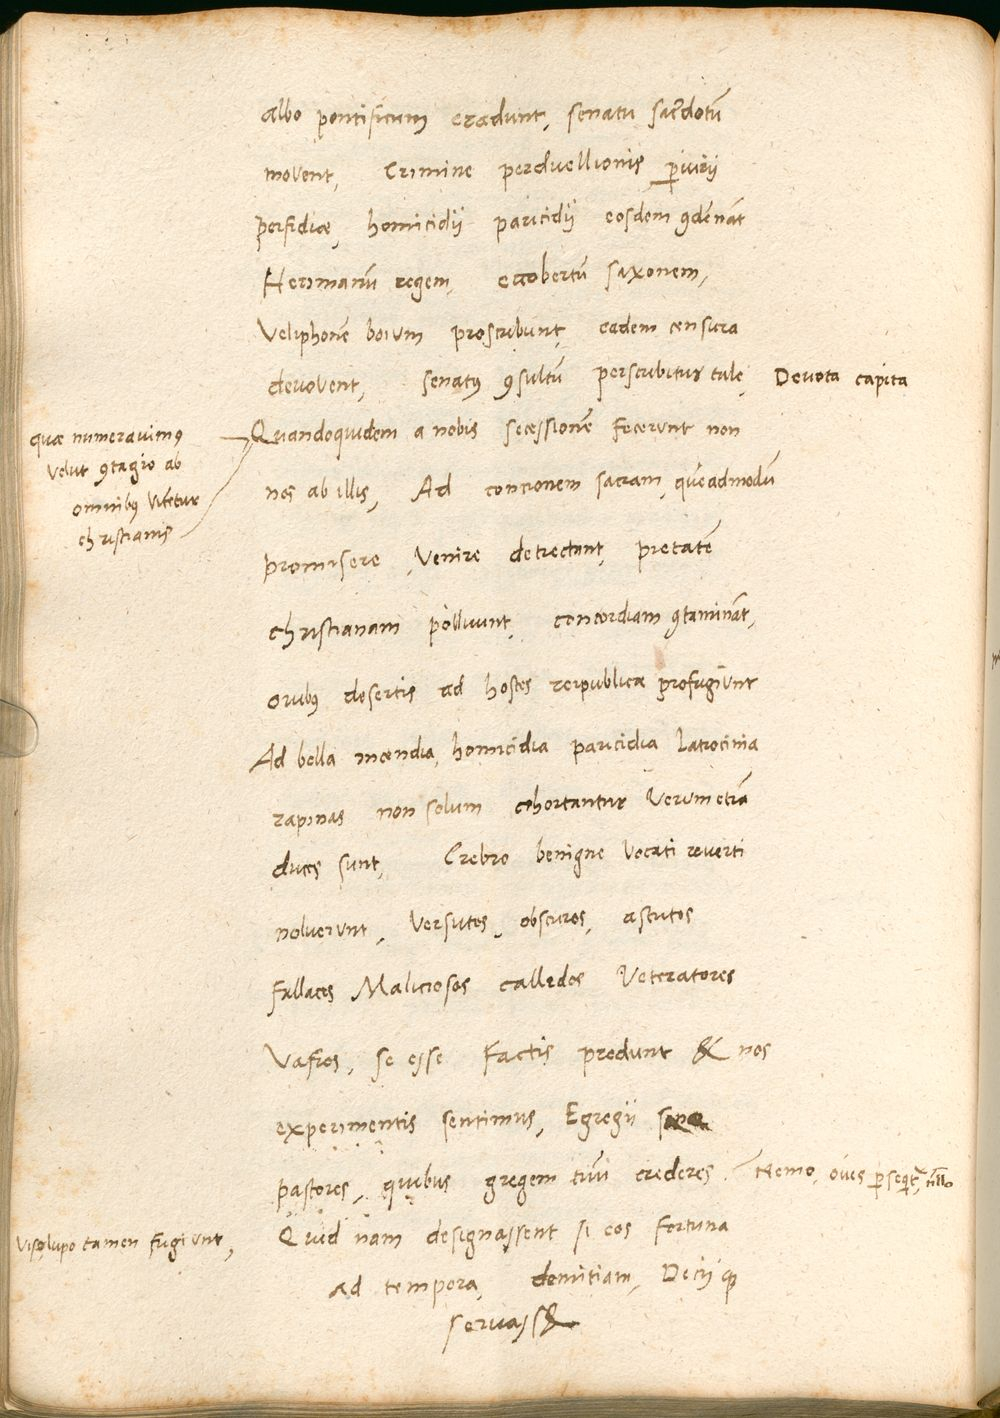 albo pontificum eradunt, senatu sacdotū
movent, Crimine perduellionis, ꝑiurij
perfidiæ, homicidij paricidij eosdem ꝯdēnāt
Herimanū regem, ecobertū saxonem,
Veliphonē boium proscribunt, eadem censura
devovent, Senatꝰ ꝯsultū perscribitur tale, Devota capita
quæ numeravimꝰ
velut ꝯtagio ab
omnibꝰ vitetur
christianis
Quandoquidem a nobis secessionē fecerunt non
nos ab illis, Ad concionem sacram, quēadmodū
promisere, Venire detrectant, pietatē
christianam polluunt, concordiam ꝯtamināt,
ovibꝰ desertis ad hostes reipublicæ profugiunt
Ad bella incendia, homicidia paricidia latrocinia
rapinas non solum cohortantur Verum etiā
duces sunt, Crebro benigne vocati reverti
noluerunt, Versutos, obscuros, astutos
fallaces Maliciosos callidos Veteratores
Vafros, se esse factis produnt & nos
experimentis sentimus, Egregij
pastores, quibus gregem tuū crederes. Nemo, oves ꝑseqt̄,
viso lupo tamen fugiunt,
Quid nam designassent si eos fortuna
ad tempora, domitiani, Decij qꝫ
servass&